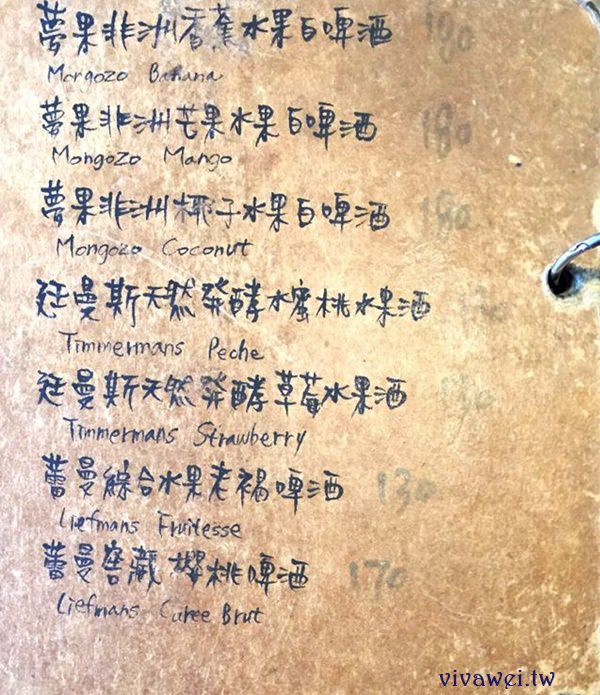 夢果非洲香蕉水果白啤酒 180
Mongozo Banana
夢果非洲芒果水果白啤酒 180
Mongozo Mango
夢果非洲椰子水果白啤酒 180
Mongozo Coconut
廷曼斯天然發酵水蜜桃水果酒
Timmermans Peche
廷曼斯天然發酵草莓水果酒 130
Timmermans Strawberry
蕾曼綜合水果老褐啤酒 130
Liefmans Fruitesse
蕾曼窖藏櫻桃啤酒 170
Liefmans Cuvee Brut
vivawei.tw